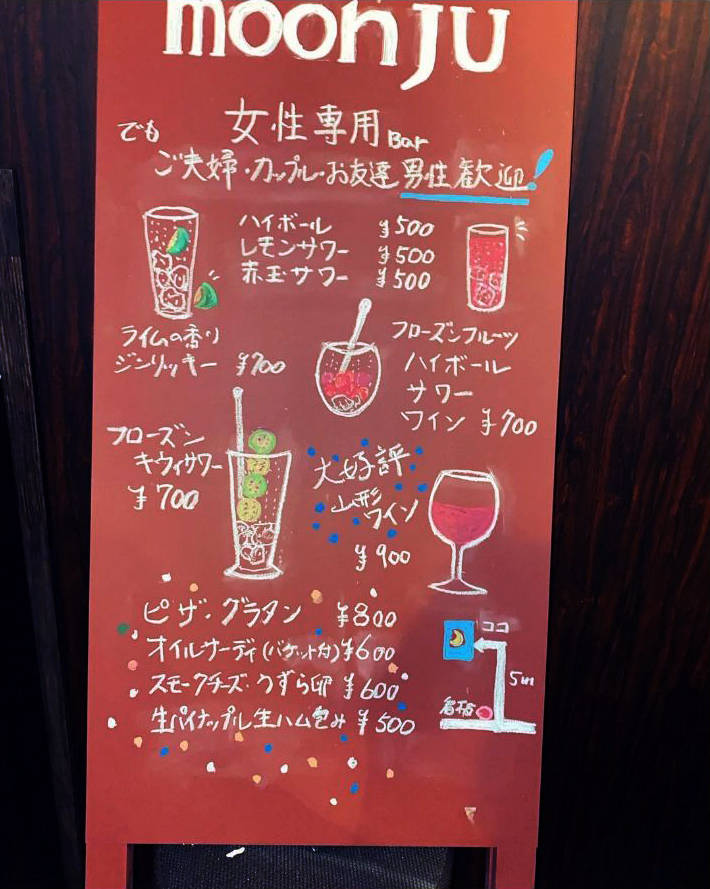 moonJU
女性専用Bar
でも
ご夫婦・カップル・お友達 男性歓迎!
ハイボール ¥500
レモンサワー ¥500
赤玉サワー ¥500
ライムの香り
ジンリッキー ¥700
フローズンフルーツ
ハイボール
サワー
ワイン ¥700
フローズン
キウィサワー
¥700
大好評
山形
ワイン
¥900
ピザ・グラタン ¥800
オイルサーディ(バゲット付) ¥600
スモークチーズ・うずら卵 ¥600
生パイナップル生ハム包み ¥500
ココ
5m
看板